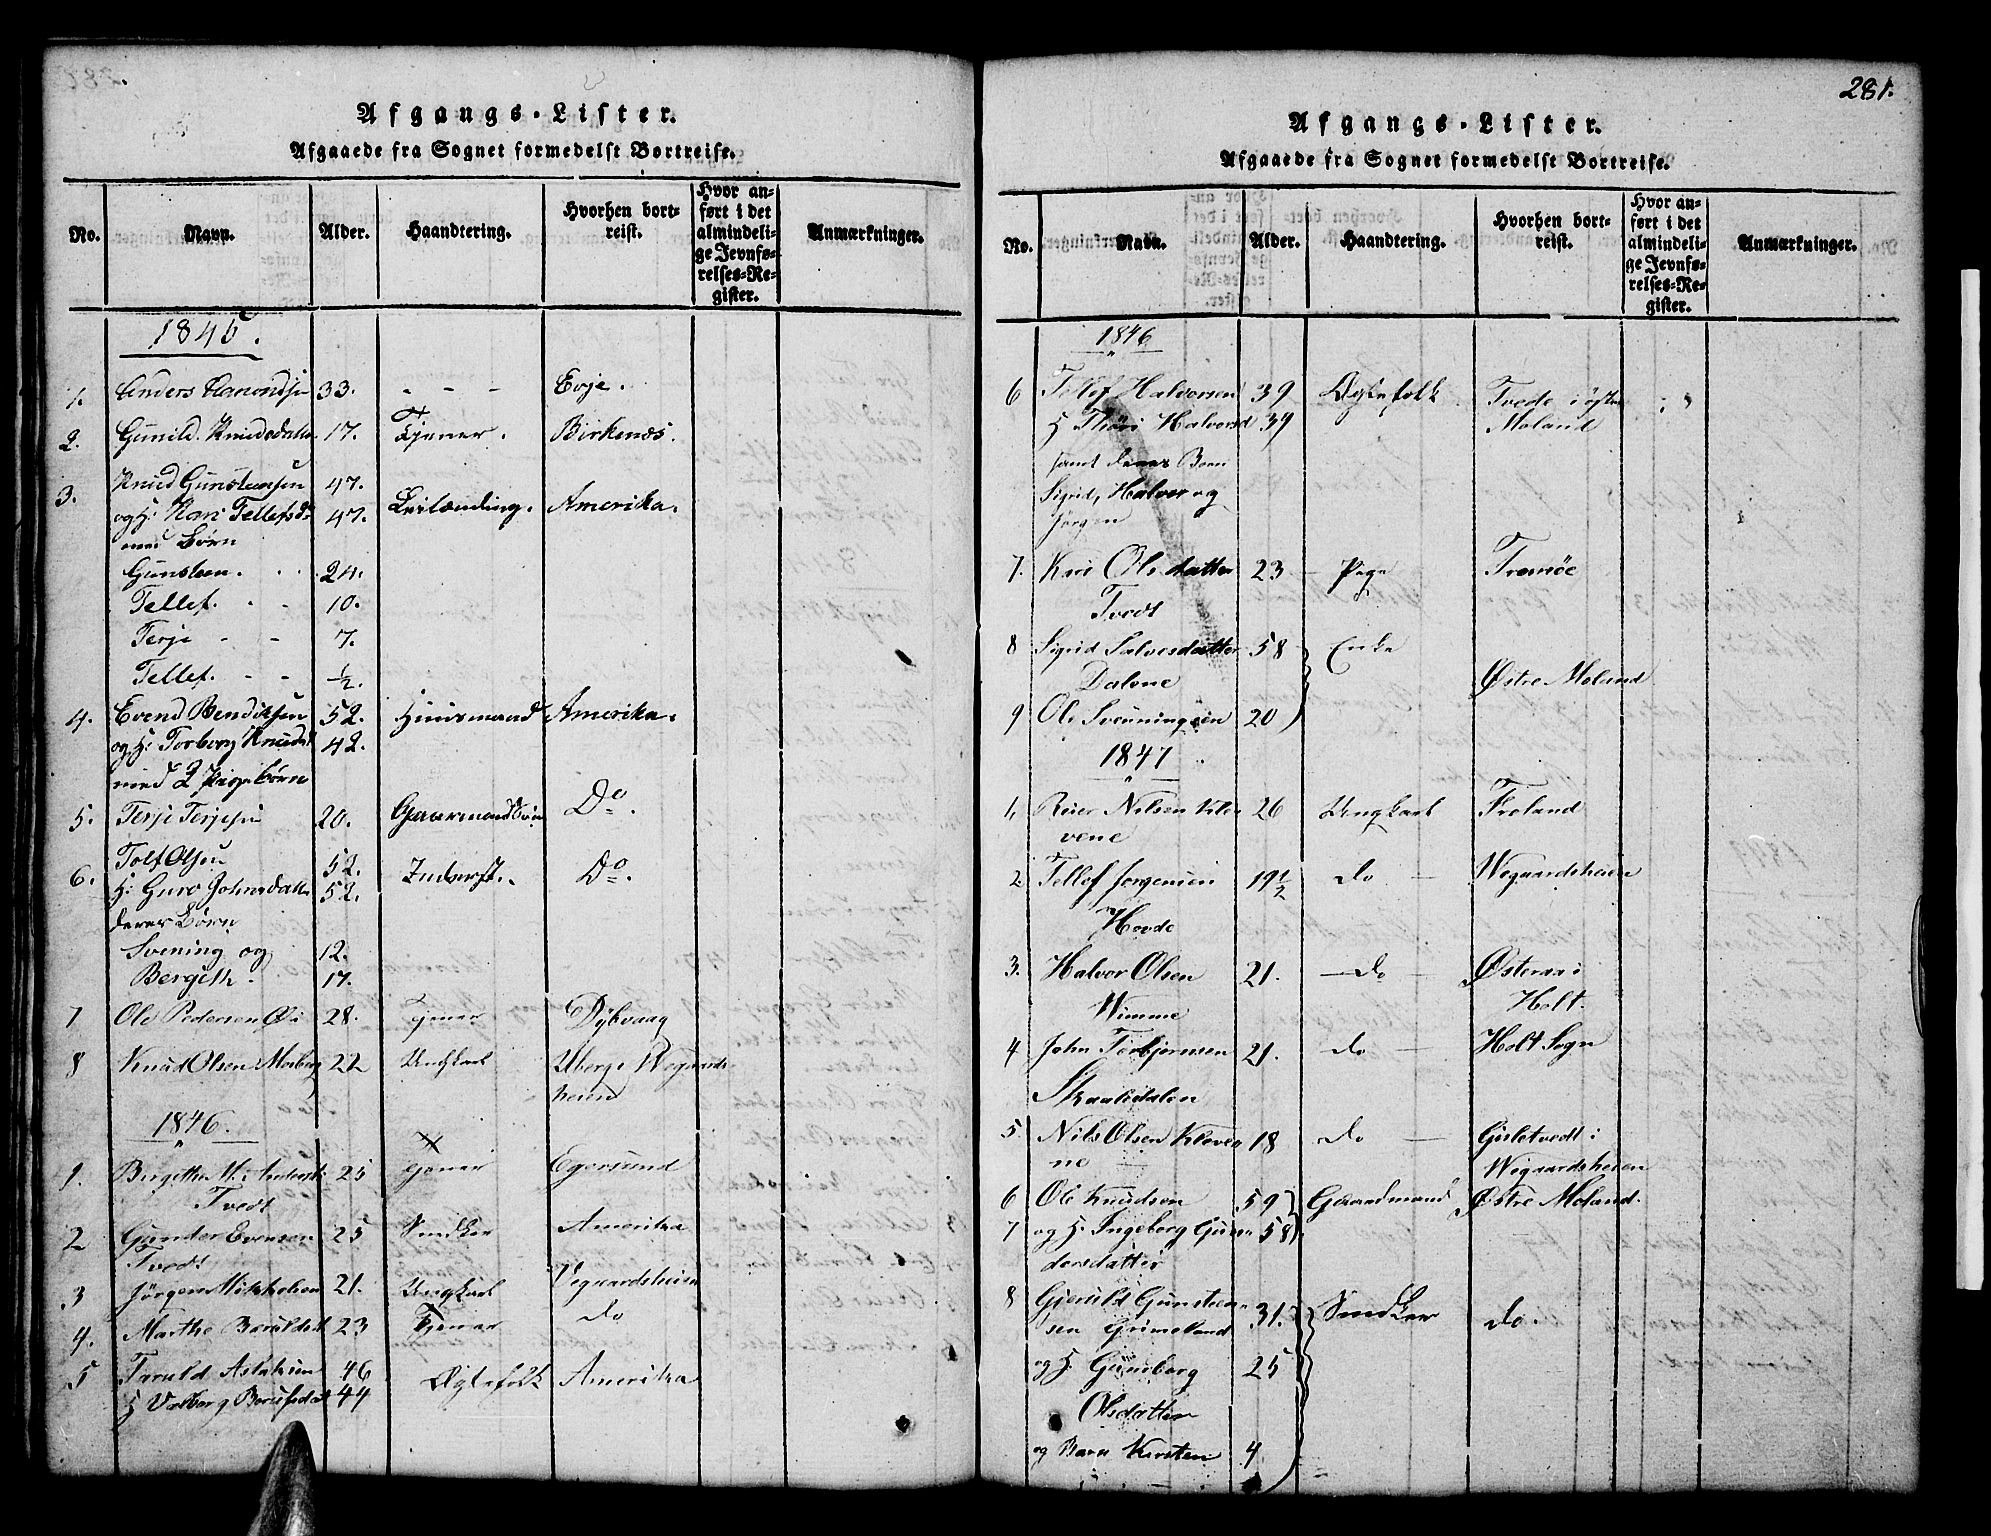 Afgangs-Lister.
Afgaaede fra Sognet formedelst Bortreise.
No. Navn. Alder. Haandtering. Hvorhen bortreist. Hvor anført i det almindelige Jevnførelses-Register. Anmærkninger.
1845.
1. Anders Amondsen 33. - - - Evje.
2. Gunild Knudsdatter 17. Tjener. Birkenæs.
3. Knud Gunsteensen 47.
og H: Kari Tellefsd. 47. Leilænding. Amerika.
med Børn
Gunsteen. 24.
Tellef. 10.
Terje 7.
Tellef. 1/2.
4. Evend Bendiksen 52. Huusmand Amerika.
og H: Torborg Knudsd 42.
med 2 Pigebørn
5. Terje Terjesen 20. Gaarmandssøn Do.
6. Tolf Olsen 52. Inderst. Do.
H: Guro Johnsdatter 52.
deres Børn
Svening og 12.
Bergith. 17.
7 Ole Pedersen 28. Tjener Dybvaag
8 Knud Olsen Mosberg 22 Ungkarl Uberge Wegaards
heien
1846.
1. Birgithe M. Andersd 25 Tjener Egersund
Tvedt
2 Gunder Evensen 25 Snedker Amerika
Tvedt
3 Jörgen Mikkelsen 21. Ungkarl Vegaardsheien
4. Marthe Baruldsd 23 Tjener do
5 Tarald Aslaksen 46 Ægtefolk Amerika
H Valborg 44
281.
Afgangs-Lister.
Afgaaede fra Sognet formedelst Bortreise.
No. Navn. Alder. Haandtering. Hvorhen bortreist. Hvor anført i det almindelige Jevnførelses-Register. Anmærkninger.
1846
6 Tellef Halvorsen 39 Ægtefolk Tvede i östre
H Halvorsd 39 Moland
samt deres Børn
Sigrid, Halvor og
Jørgen
7. Kari Olsdatter 23 Pige Tromöe
Tvedt
8 Sigrid Salvesdatter 58 Enke
Dalene Østre Moland
9 Ole Svenningsen 20
1847
1. Reier Nilsen Kle 26 Ungkarl Froland
vene
2 Tellef Jørgensen 19 1/2 do Wegaardsheien
Hovde
3. Halvor Olsen 21. do Østeraa i
Wimme Holt.
4 John Torbjørnsen 21. do Holt Sogn
Skaalidalen
5 Nils Olsen Kleve 18 do Gisletvedt i
ne Wegaardsheien
6 Ole Knudsen 59 Gaardmand Østre Moland.
7 og H. Ingeborg Gun 58
dersdatter
8 Gjeruld Gunsteen 31. Snedker do.
sen Grimeland
og H. Gunborg 25
Olsdatter
og Barn Kirsten 4